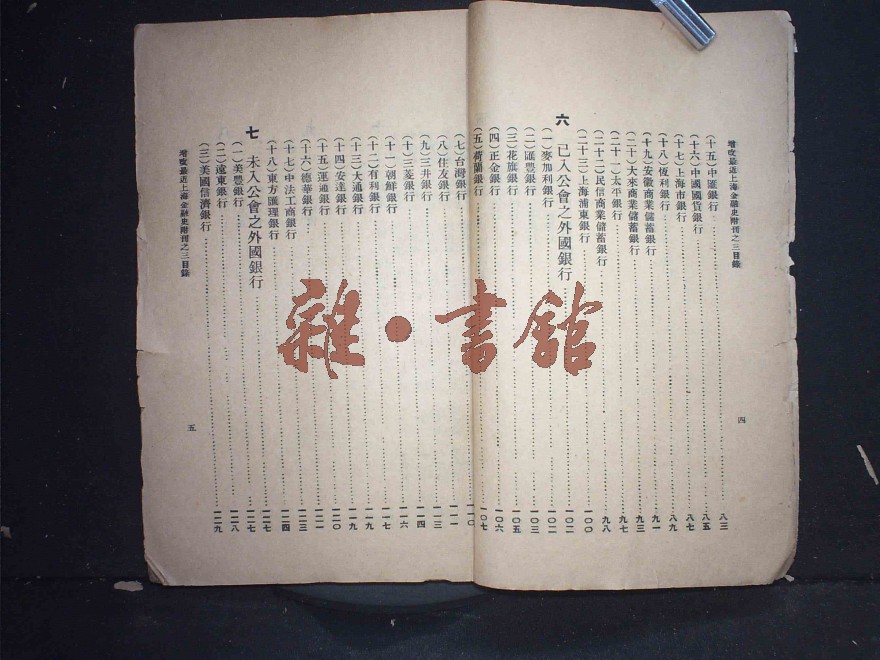 增改最近上海金融史附刊之三目錄 四
(十五)中匯銀行 八三
(十六)中國國貨銀行 八五
(十七)上海市銀行 八七
(十八)恆利銀行 八九
(十九)安徽商業儲蓄銀行 九一
(二十)大來商業儲蓄銀行 九三
(二十一)太平銀行 九七
(二十二)民信商業儲蓄銀行 九八
(二十三)上海浦東銀行 一〇〇
六 已入公會之外國銀行 一〇二
(一)麥加利銀行 一〇二
(二)匯豐銀行 一〇三
(三)花旗銀行 一〇五
(四)正金銀行 一〇六
(五)荷蘭銀行 一〇七
(七)台灣銀行 一一〇
(八)住友銀行 一一一
(九)三井銀行 一一三
(十)三菱銀行 一一四
(十一)朝鮮銀行 一一六
(十二)有利銀行 一一七
(十三)大通銀行 一一九
(十四)安達銀行 一一九
(十五)運通銀行 一二〇
(十六)德華銀行 一二一
(十七)中法工商銀行 一二三
(十八)東方匯理銀行 一二四
七 未入公會之外國銀行 一二七
(一)美豐銀行 一二七
(二)遠東銀行 一二八
(三)美國信濟銀行 一二九
增改最近上海金融史附刊之三目錄 五
雜·書館